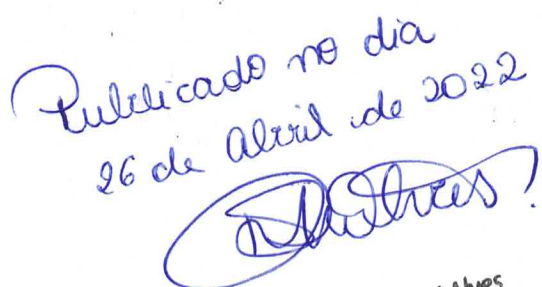 Publicado no dia
26 de Abril de 2022
Alves